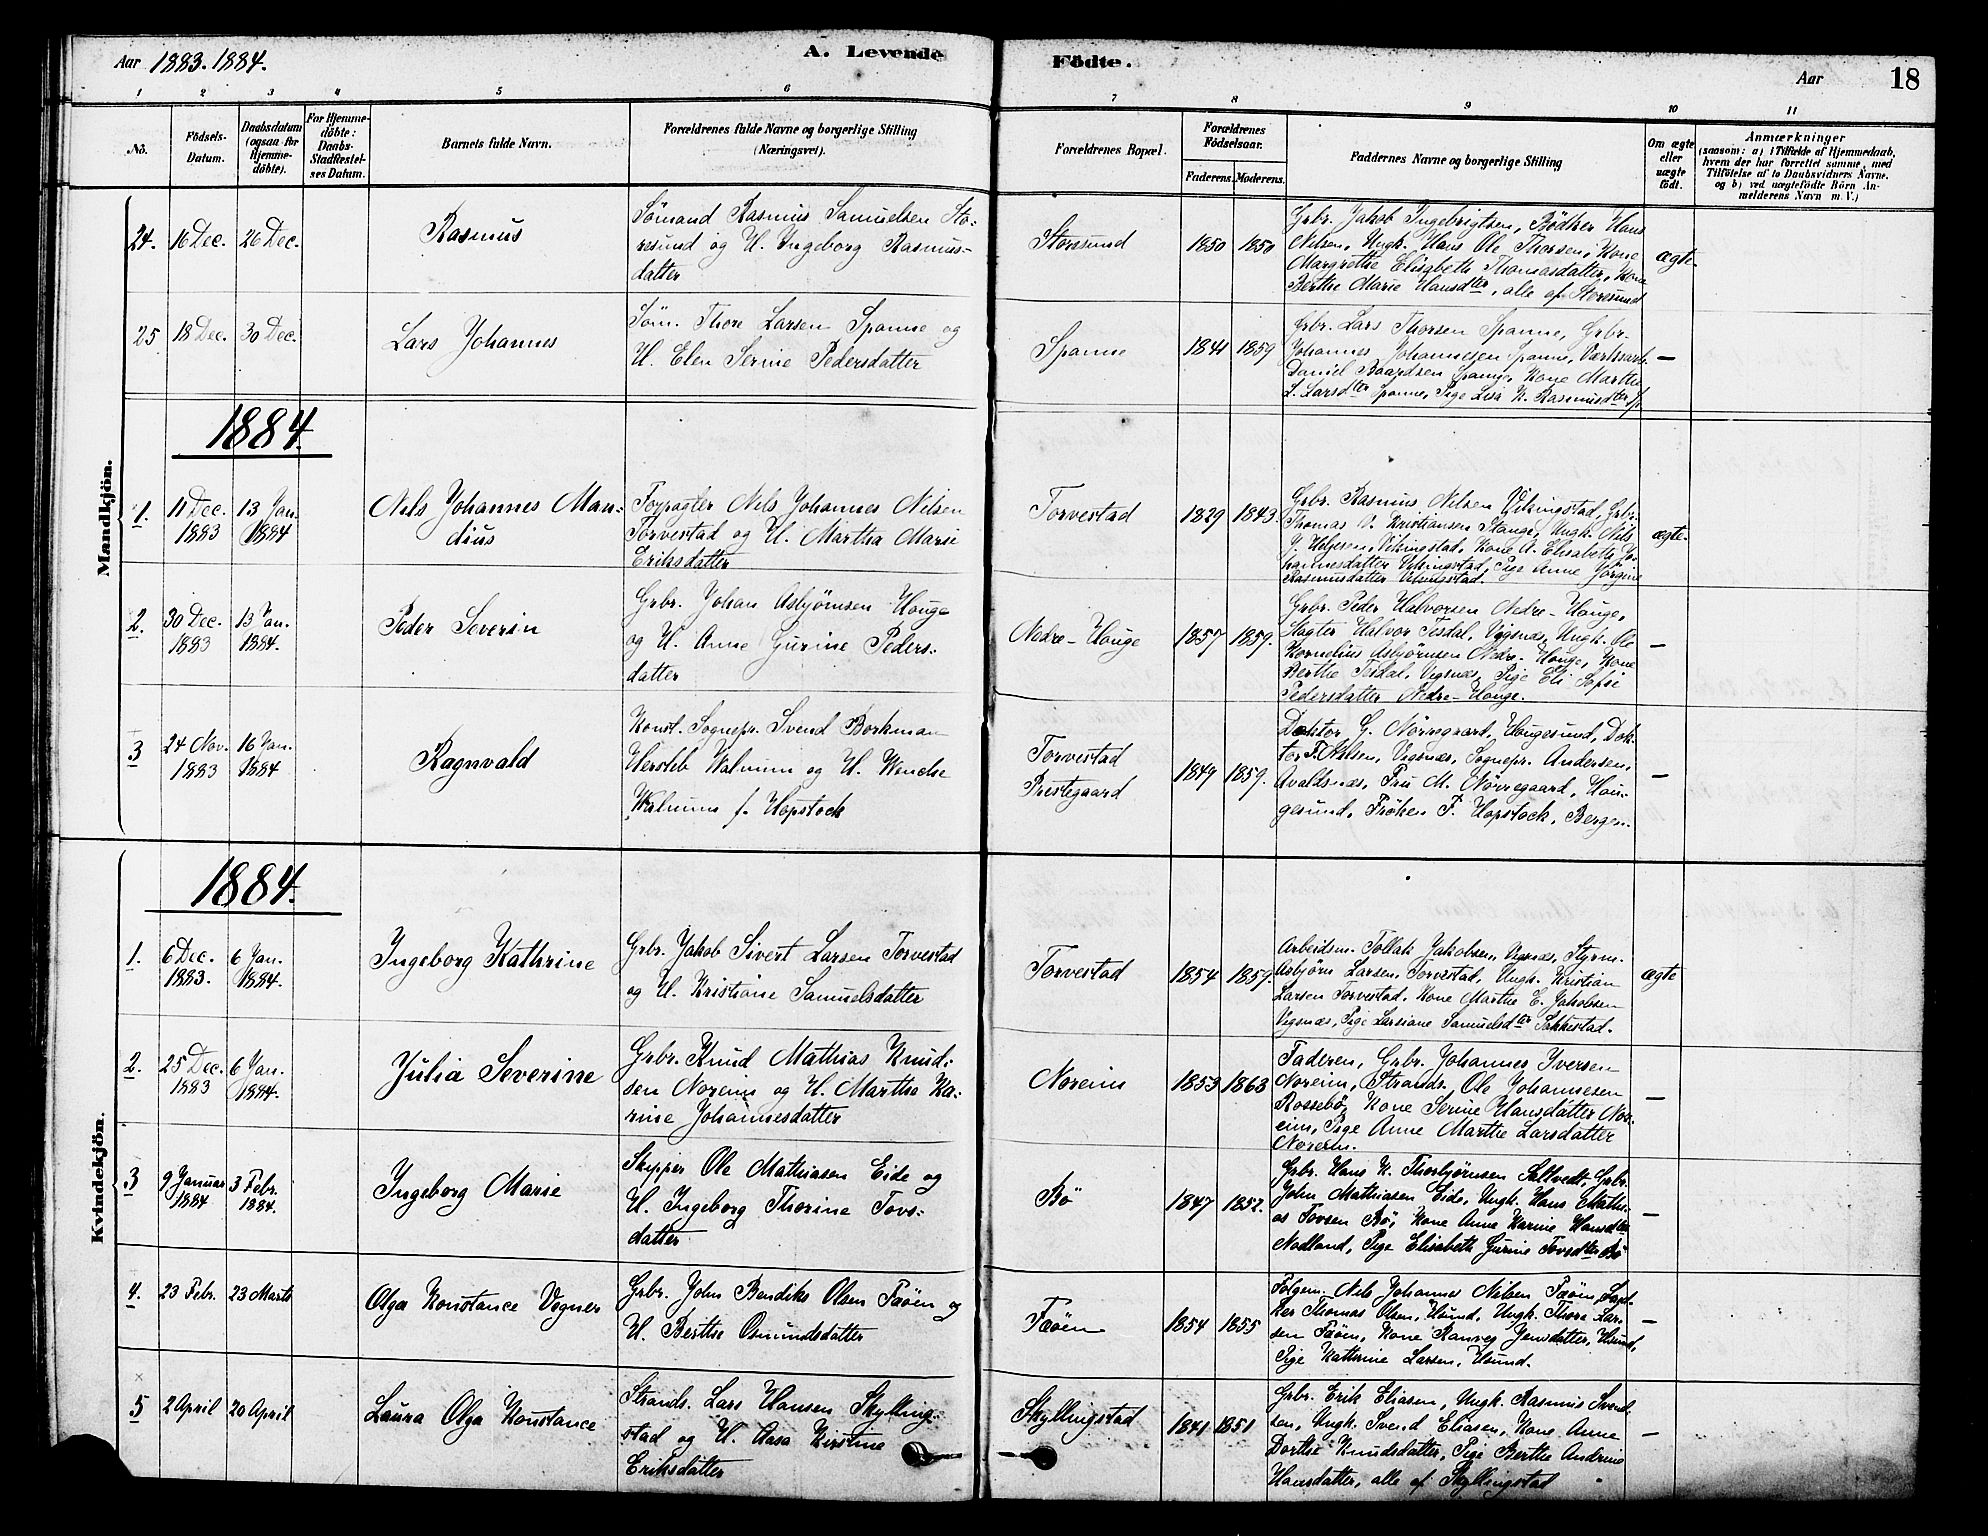 Aar 1883. 1884. A. Levende Födte. Aar 18
1 2 3 4 5 6 7 8 9 10 11
No.
Födsels-
Datum.
Daabsdatum
(ogsaa for
Hjemme-
döbte).
For Hjemme-
döbte:
Daabs-
Stadfæstel-
ses Datum.
Barnets fulde Navn.
Forældrenes fulde Navne og borgerlige Stilling
(Næringsvei).
Forældrenes Bopæl.
Forældrenes
Födselsaar.
Faderens. Moderens.
Faddernes Navne og borgerlige Stilling
Om ægte
eller
uægte
födt.
Anmærkninger
(saasom: a) i Tilfælde af Hjemmedaab,
hvem der har forrettet samme, med
Tilföielse af to Daabsvidners Navne.
og b) ved uægtefödte Börn An-
melderens Navn m. V.)
Mandkjön.
24. 16 Dec. 26 Dec.
Rasmus
Sömand Rasmus Samuelsen Sto-
resund og H. Ingeborg Rasmus-
datter
Storesund
1850 1850
Grbr. Jakob Ingebrigtsen, Bödker Hans
Nilsen, Ungk. Hans Ole Thorsen, Kone
Margrethe Elisabeth Thomasdatter, Kone
Berthe Marie Hansdter, alle af Storesund
ægte
25 18 Dec. 30 Dec.
Lars Johannes
Söm. Thore Larsen Spanne og
H. Elen Serine Pedersdatter
Spanne
1841 1859
Grbr. Lars Thorsen Spanne, Grbr.
Johannes Johannesen Spanne, Værksarb.
Daniel Baardsen Spange, Kone Marthe
L. Larsdter Spanne, Pige Lisa K. Rasmusdter Sp.
—
1884.
1. 11 Dec. 1883 13 Jan. 1884
Nels Johannes Man-
dius
Forpagter Nels Johannes Nilsen
Torvestad og H. Martha Marie
Eriksdatter
Torvestad
1829 1843.
Grbr. Rasmus Nilsen Vikingstad, Grbr.
Thomas V. Kristiansen Stange, Ungk. Nils
J. Helgesen, Vikingstad, Kone A. Elisabeth Jo-
hannesdatter Vikingstad, Pige Anne Jörgine
Rasmusdatter Vikingstad.
ægte.
2. 30 Dec. 1883 13 Jan. 1884.
Peder Severin
Grbr. Johan Asbjörnsen Houge
og H. Anne Gurine Peders-
datter
Nedre-Houge
1857 1859.
Grbr. Peder Halvorsen Nedre-Houge,
Slagter Halvor Tesdal, Vigsnæs, Ungk. Ole
Kornelius Asbjörnsen Nedre-Houge, Kone
Berthe Tesdal, Vigsnæs, Pige Eli Sofie
Pedersdatter Nedre-Houge.
—
3 24 Nov. 1883 16 Jan. 1884
Ragnvald
Konst. Sognepr. Svend Borkman
Hersleb Walnum og H. Wenche
Walnum f. Hopstock
Torvestad
Prestegaard
1849 1859.
Doktor G. Nörregaard, Haugesund, Dok-
tor F. Nilsen, Vigsnæs, Sognepr. Andersen,
Avaldsnæs, Fru M. Nörregaard, Hau-
gesund, Fröken F. Hopstock, Bergen.
—
Kvindekjön.
1884.
1. 6 Dec. 1883. 6 Jan. 1884.
Ingeborg Kathrine
Grbr. Jakob Sivert Larsen Torvestad
og H. Kristiane Samuelsdatter
Torvestad
1854 1859.
Arbeidsm. Tollak Jakobsen, Vigsnæs, Styrm.
Asbjörn Larsen, Torvestad, Ungk. Kristian
Larsen Torvestad, Kone Marthe E. Jakobsen
Vigsnæs, Pige Larsiane Samuelsdter
ægte
2. 25 Dec. 1883 6 Jan. 1884.
Julia Severine
Grbr. Knud Mathias Knud-
sen Noreim og H. Martha Ka-
rine Johannesdatter
Noreim
1853 1863
Faderen, Grbr. Johannes Iversen
Noreim, Strands. Ole Johannesen
Rossebö, Kone Serine Hansdatter Nor-
eim, Pige Anne Marthe Larsdatter
Noreim.
—
3 9 Januar 1884 3 Febr. 1884.
Ingeborg Marie
Skipper Ole Mathiasen Eide og
H. Ingeborg Thorine Tovs-
datter
Bö
1847 1852.
Grbr. Hans K. Thorbjörnsen Saltvedt, Grbr.
John Mathiasen Eide, Ungk. Hans Mathi-
as Tovsen Bö, Kone Anne Karine Hansdter
Nodland, Pige Elisabeth Gurine Tovsdter Bö
—
4. 23 Febr. 23 Marts
Olga Konstance Vogner
Grbr. John Bendiks Olsen Fæöen og
H. Berthe Osmundsdatter
Fæöen
1854 1855
Fölgem. Nils Johannes Nilsen Fæöen,
Thomas Olsen, Hsund, Ungk. Thore Lar-
sen Fæöen, Kone Ranveg Jensdatter, Hsund,
Pige Kathrine Larsen, Hsund.
—
5 2 April 20 April
Laura Olga Konstance
Strands. Lars Hansen Skylling-
stad og H. Aasa Kirstine
Eriksdatter
Skyllingstad
1841 1851
Grbr. Erik Eliasen, Ungk. Rasmus Svend-
sen, Ungk. Svend Eliasen, Kone Anne
Dorthe Knudsdatter, Pige Berthe Andrine
Hansdatter, alle af Skyllingstad
—